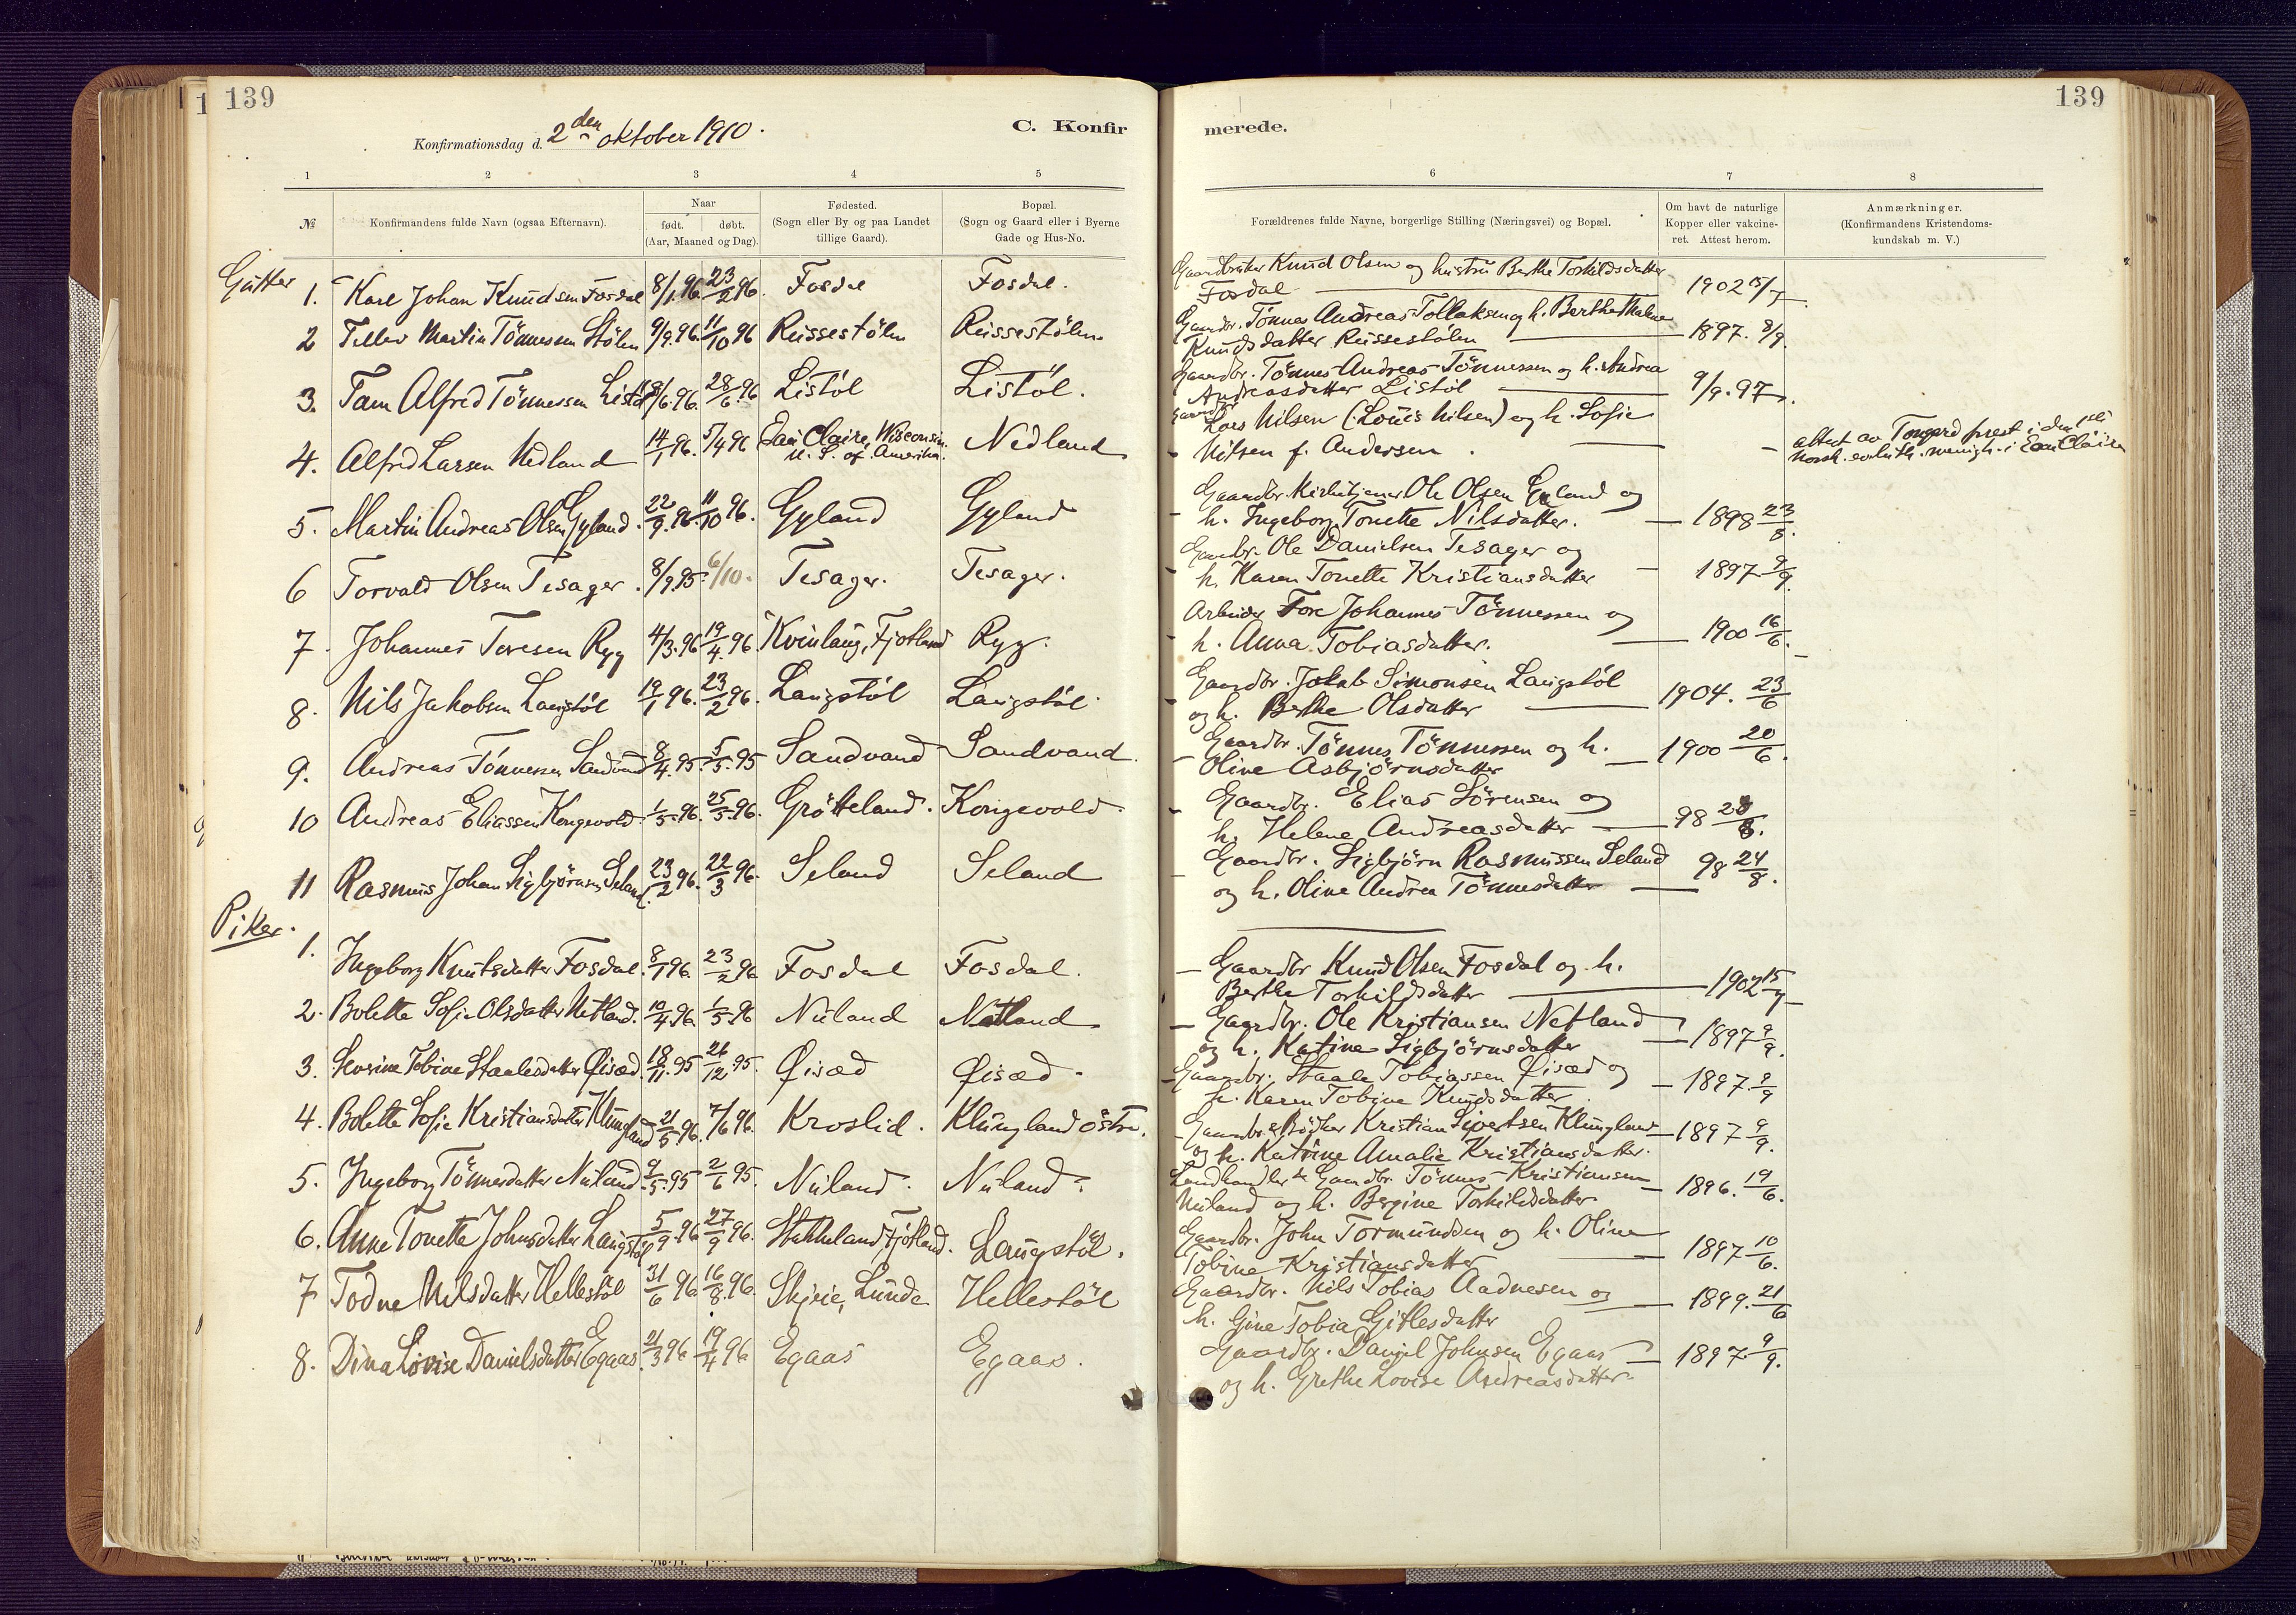 139
Konfirmationsdag d. 2den oktober 1910.
C. Konfir
1 2 3 4 5
№ Konfirmandens fulde Navn (ogsaa Efternavn). Naar født. døbt. (Aar, Maaned og Dag). Fødested. (Sogn eller By og paa Landet tillige Gaard). Bopæl. (Sogn og Gaard eller i Byerne Gade og Hus-No.
Gutter
1. Karl Johan Knudsen Fosdal 8/1.96. 23/2 96. Fosdal Fosdal.
2 Tellev Martin Tönnessen Stölen 9/9.96. 11/10 96 Reissestölen Reissestölen
3. Tam Alfred Tönnessen Listöl 8/6.96. 28/6.96 Listöl Listöl.
4. Alfred Larsen Nedland 14/1 96. 5/4 96 Eau Claire, Wisconsin U. S. of Amerika. Nedland
5. Martin Andreas Olsen Gyland. 22/9.96. 11/10 96. Gyland Gyland
6 Torvald Olsen Tesager. 8/9.95. 6/10. Tesager. Tesager.
7. Johannes Toresen Ryg 4/3.96 19/4.96. Kvinlaug, Fjotland Ryg.
8. Nils Jakobsen Laugstöl 19/1 96. 23/2 96. Laugstöl Laugstöl.
9. Andreas Tönnessen Sandvand 8/4.95. 5/5.95 Sandvand Sandvand.
10 Andreas Eliassen Kongevold 1/5.96. 25/5.96. Grötteland. Kongevold.
11 Rasmus Johan Sigbjörnsen Seland. 23/2 96. 22/3 96. Seland Seland
Piker.
1. Ingeborg Knutsdatter Fosdal. 8/1 96. 23/2 96 Fosdal Fosdal.
2. Bolette Sofie Olsdatter Netland. 10/4.96. 1/5.96 Nuland Netland
3. Severine Tobine Staalesdatter Øisæd. 18/11.95 26/12 95. Øisæd Øisæd.
4. Bolette Sofie Kristiansdatter Klungland 21/5 96. 7/6 96. Kroslid. Klungland östre.
5. Ingeborg Tönnesdatter Nuland. 9/5.95 2/6 95. Nuland. Nuland.
6. Anne Tonette Johnsdatter Laugstöl 5/9.96 27/9 96. Stakkeland, Fjotland. Laugstöl.
7 Todne Nilsdatter Hellestöl 31/6 96 16/8.96. Skjeie, Lunde Hellestöl
8. Dina Lovise Danielsdatter Egaas. 21/3 96 19/4 96 Egaas Egaas.
139
merede.
6 7 8
Forældrenes fulde Navne, borgerlige Stilling (Næringsvei) og Bopæl. Om havt de naturlige Kopper eller vakcineret. Attest herom. Anmærkninger. (Konfirmandens Kristendomskundskab m. V.)
Gaardbruker Knud Olsen og hustru Berthe Torkildsdatter
Fosdal 1902 15/7.
Gaardbr. Tönnes Andreas Tollaksen og h. Berthe Malene
Knudsdatter Reissestölen 1897. 8/9.
Gaardbr. Tönnes Andreas Tönnessen og h. Andrea
Andreasdatter Listöl 9/9.97.
Gaardbr. Lars Nilsen (Louis Nilsen) og h. Sofie
Nilsen f. Andersen.
attest av prest i den
norsk. ev. luth. menigh. i Eau Claire
Gaardbr. Kirketjener Ole Olsen Gyland og
h. Ingeborg Tonette Nilsdatter. 1898 23/8.
Gaardbr. Ole Danielsen Tesager og
h. Karen Tonette Kristiansdatter 1897 9/9.
Arbeider Tore Johannes Tönnessen og
h. Anna Tobiasdatter. 1900 16/6.
Gaardbr. Jakob Simonsen Laugstöl
og h. Berthe Olsdatter 1904. 23/6
Gaardbr. Tönnes Tönnessen og h.
Oline Asbjörnsdatter 1900 20/6.
Gaardbr. Elias Sörensen og
h. Helene Andreasdatter 98 28/8.
Gaardbr. Sigbjörn Rasmussen Seland
og h. Oline Andrea Tönnesdatter 98 24/8.
Gaardbr Knud Olsen Fosdal og h.
Berthe Torkildsdatter 1902 15/7
Gaardbr. Ole Kristiansen Netland
og h. Katine Sigbjörnsdatter 1897 9/9.
Gaardbr. Staale Tobiassen Øisæd og
h. Karen Tobine Knudsdatter. 1897. 9/9
Gaardbr. & Bödker Kristian Sivertsen Klungland
og h. Katrine Amalie Kristiansdatter. 1897 9/9.
Landhandler & Gaardbr. Tönnes Kristiansen
Nuland og h. Bergine Torkildsdatter 1896. 19/6.
Gaardbr. John Tormundsen og h. Oline
Tobine Kristiansdatter 1897 10/6.
Gaardbr. Nils Tobias Aadnesen og
h. Gine Tobia Gitlesdatter 1899. 21/6
Gaardbr. Daniel Johnsen Egaas
og h. Grethe Lovise Andreasdatter. 1897. 9/9.